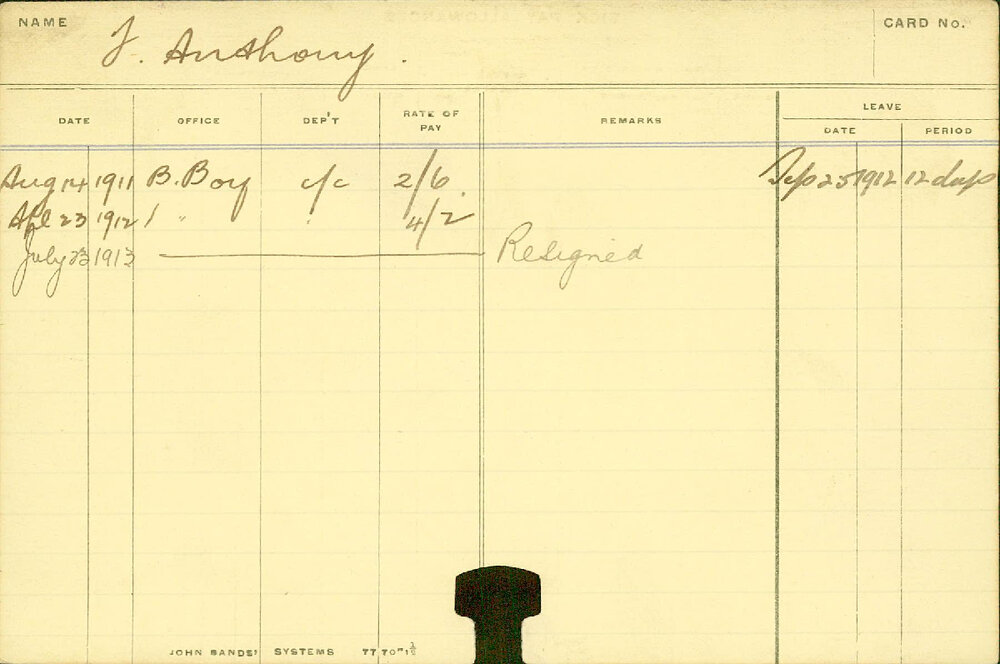 NAME J. Anthony. CARD No.
DATE OFFICE DEP'T RATE OF PAY REMARKS LEAVE
DATE PERIOD
Aug 14 1911 B. Boy c/c 2/6. Sep 25 1912 12 days
Apl 23 1912 / " " 4/2
July 23 1913 Resigned
JOHN SANDS' SYSTEMS